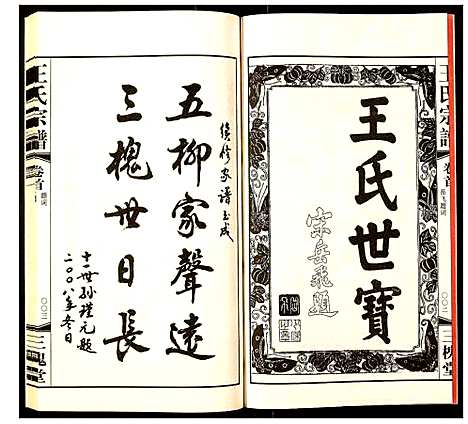 王氏宗譜
卷首
岳飞题词
〇〇二
三槐堂
王氏世寶
宋岳飛題
續修家譜玉成
五柳家聲遠
三槐世日長
十一世孫瑾元題
二〇〇八年冬日
王氏宗譜
卷首
題词
〇〇三
三槐堂